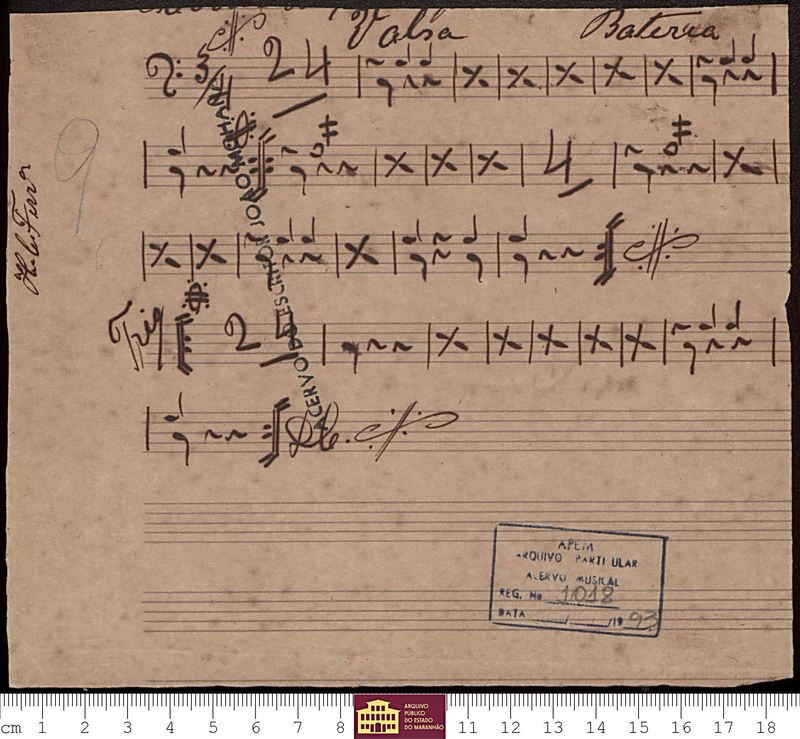 Valsa Bateria
3/4 24
4
Trio
25
D.C.
9
ACERVO DO ESCRITOR JOÃO MOHANA
APEM
ARQUIVO PARTICULAR
ACERVO MUSICAL
REG. No 1018
DATA ___/___/19 93
cm 1 2 3 4 5 6 7 8 11 12 13 14 15 16 17 18
ARQUIVO
PÚBLICO
DO ESTADO
DO MARANHÃO